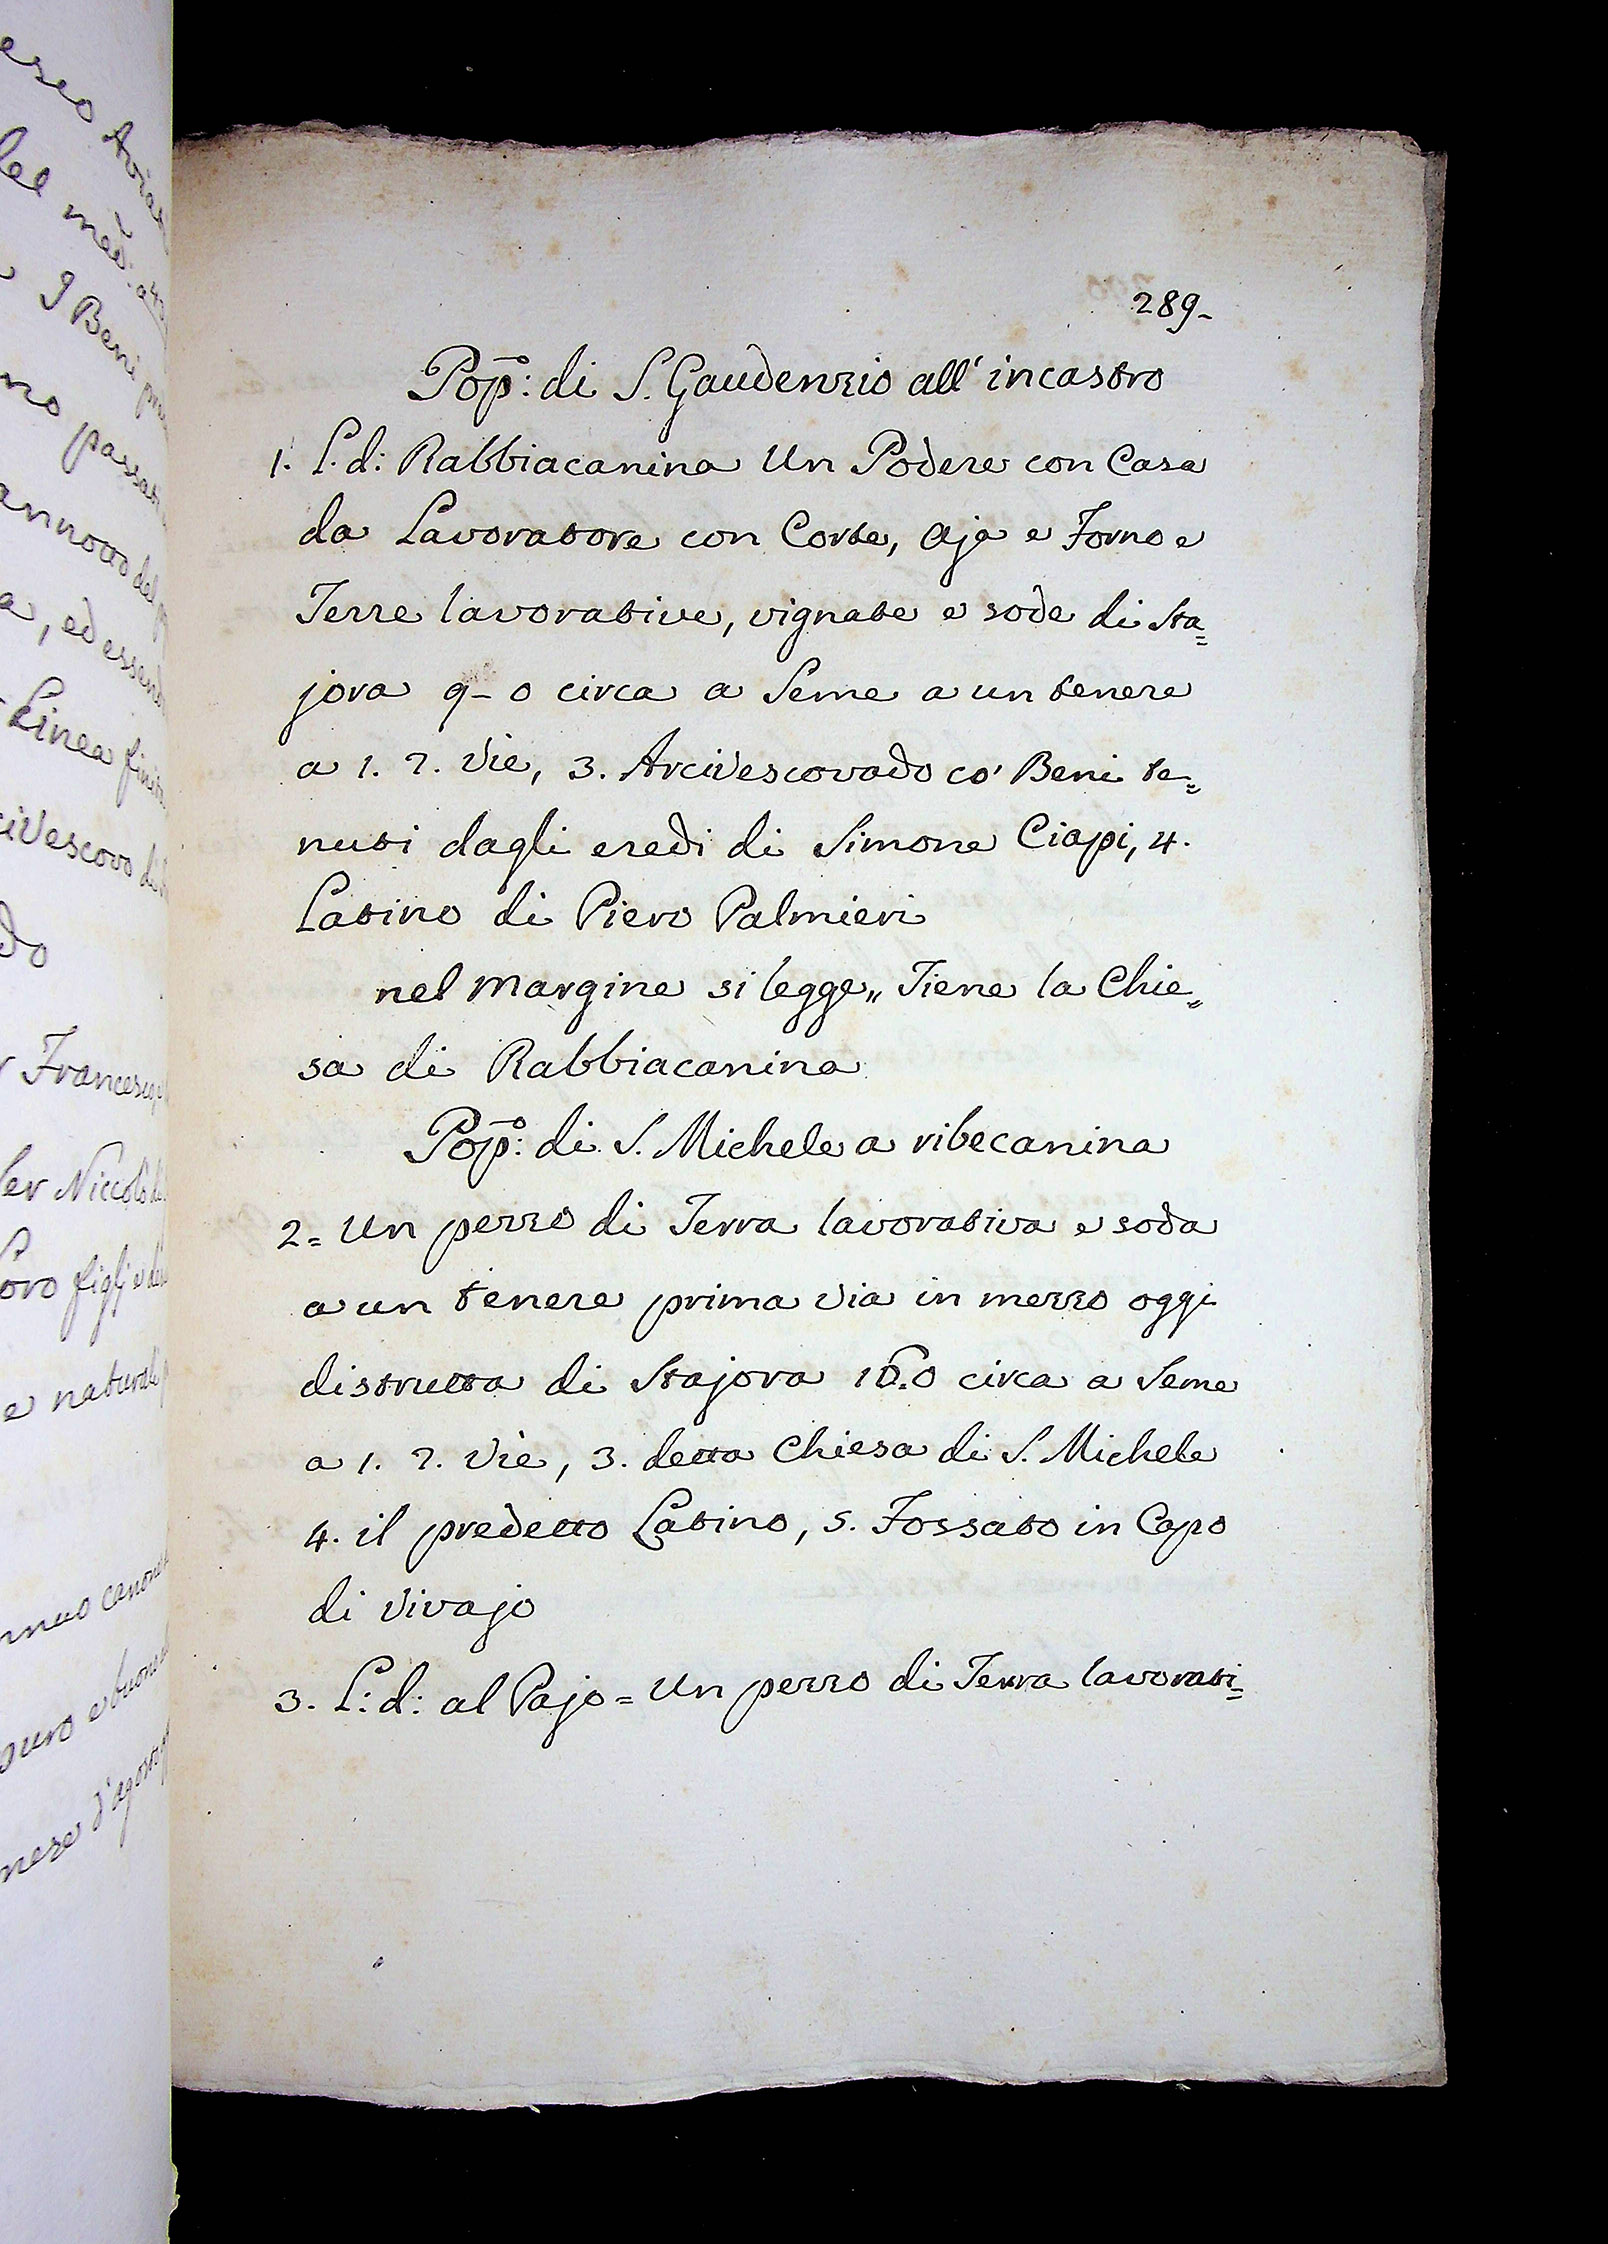 289-
Pop̄o: di S. Gaudenzio all' incastro
1. L.d: Rabbiacanina Un Podere con Casa
da Lavoratore con Corte, Aja e Forno e
Terre lavorative, vignate e sode di Sta=
jora 9-0 circa a Seme a un tenere
a 1. 2. Vie, 3. Arcivescovado co' Beni te=
nuti dagli eredi di Simone Ciapi, 4.
Latino di Piero Palmieri
nel margine si legge„ Tiene la Chie=
sa di Rabbiacanina
Pop̄o: di S. Michele a ribecanina
2= Un pezzo di Terra lavorativa e soda
a un tenere prima via in mezzo oggi
distrutta di Stajora 10.0 circa a Seme
a 1. 2. Vie, 3. detta Chiesa di S. Michele
4. il predetto Latino, 5. Fossato in Capo
di Vivajo
3. L:d: al Pajo= Un pezzo di Terra lavorati=